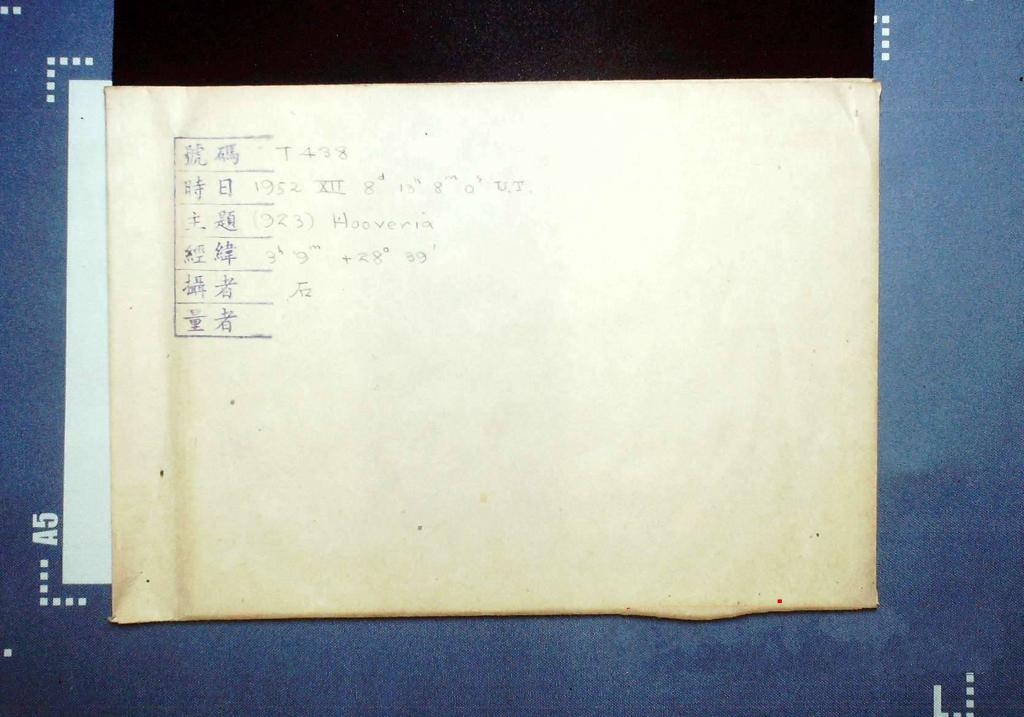 號碼 T 438
時日 1952 XII 8ᵈ 13ʰ 8ᵐ 0ˢ U.T.
主題 (923) Hooveria
經緯 3ʰ 9ᵐ +28° 39'
攝者 石
量者
A5